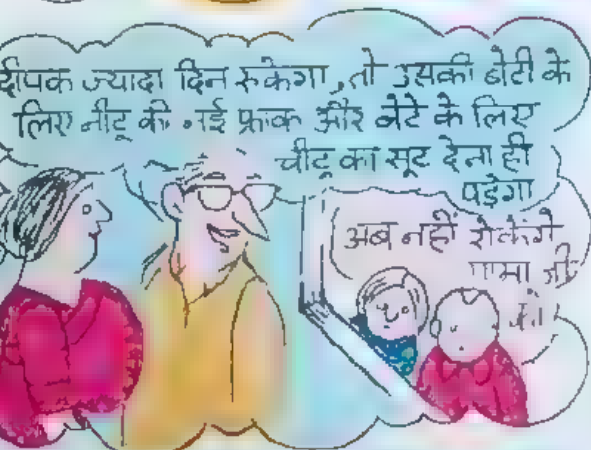 दीपक ज्यादा दिन रुकेगा, तो उसकी बेटी के
लिए नीटू की नई फ्रॉक और बेटे के लिए
चीटू का सूट देना ही
पड़ेगा
अब नहीं रोकेंगे
मामा जी
को